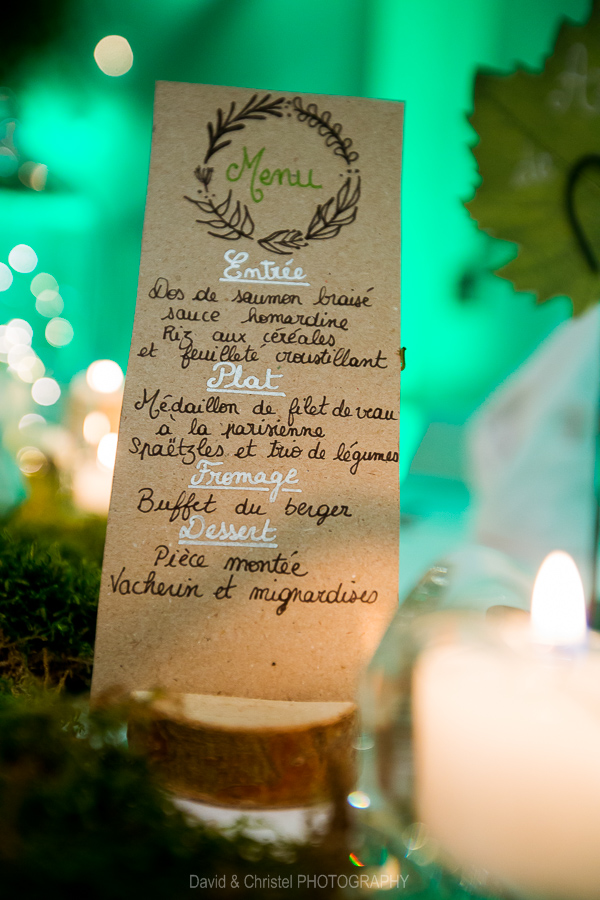 Menu
Entrée
Dos de saumon braisé
sauce homardine
Riz aux céréales
et feuilleté croustillant
Plat
Médaillon de filet de veau
à la parisienne
Spaëtzles et trio de légumes
Fromage
Buffet du berger
Dessert
Pièce montée
Vacherin et mignardises
David & Christel PHOTOGRAPHY